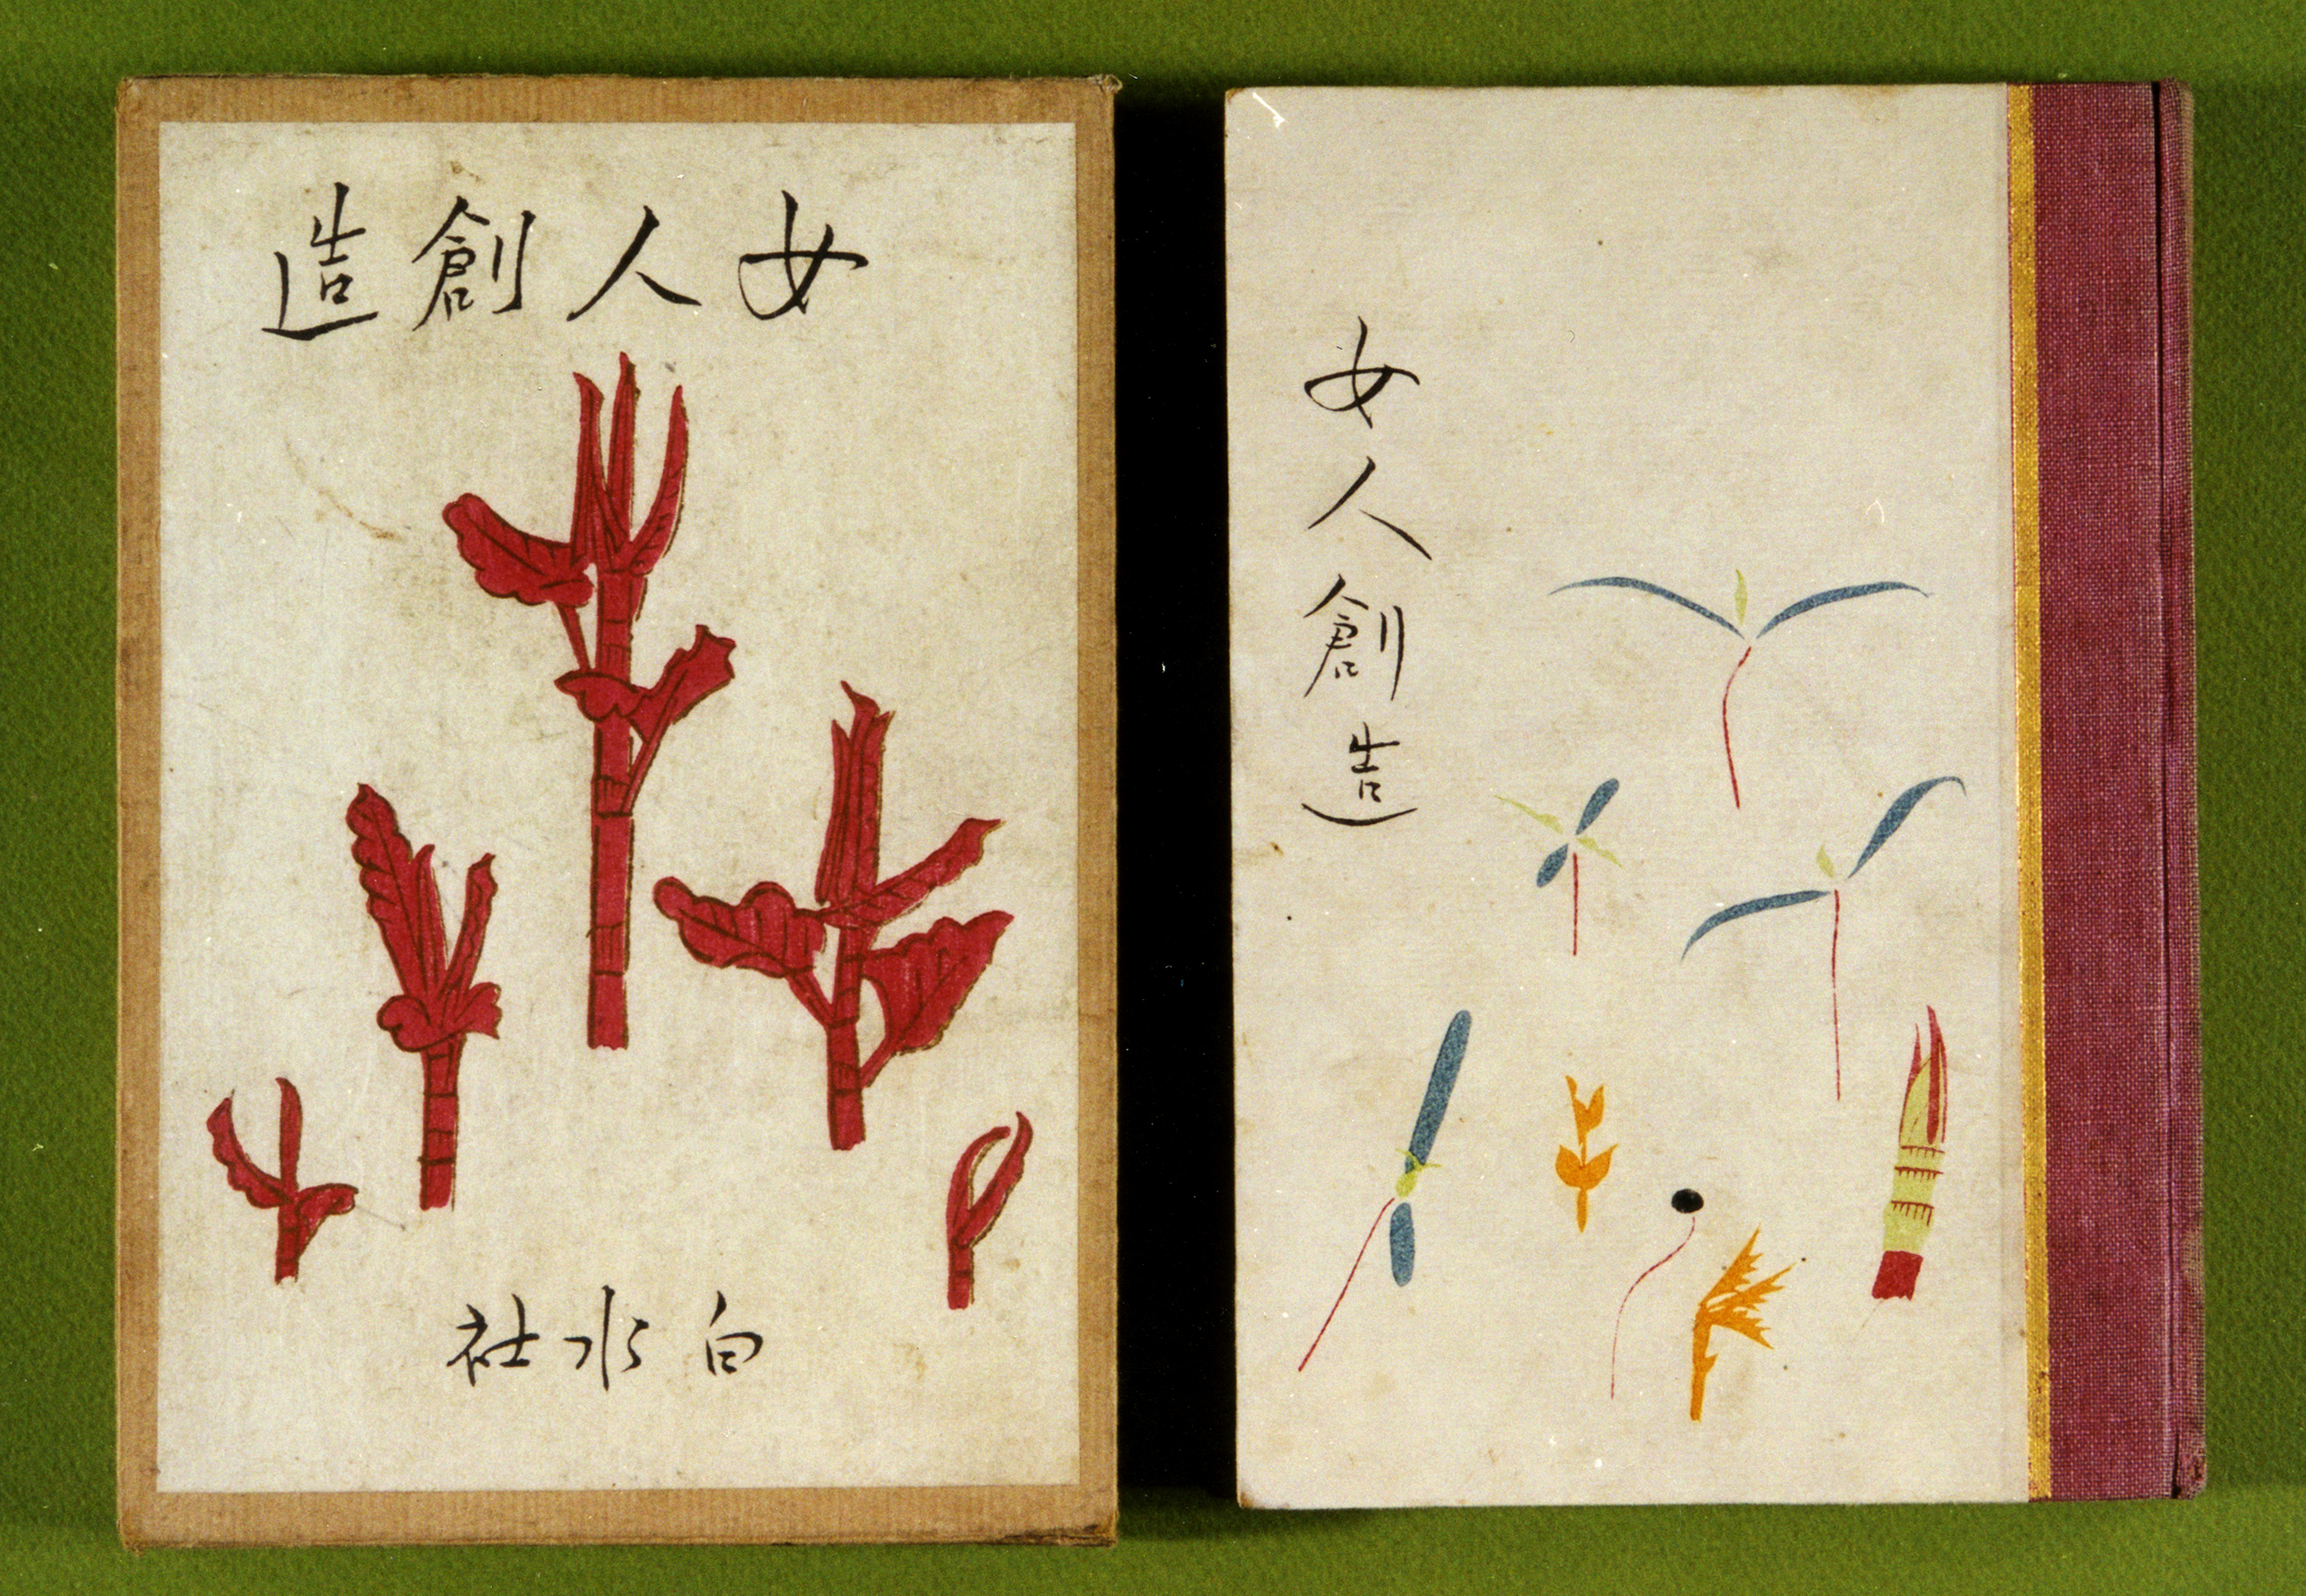 女人創造
白水社
女人創造